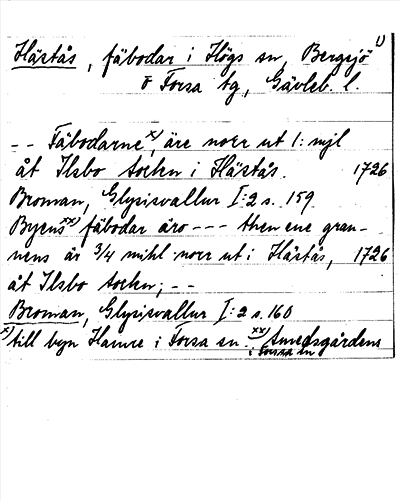 1)
Hästås, fäbodar i Högs sn, Bergsjö
o Forsa tg, Gävleb. l.
-- Fäbodarne x) äre norr ut 1: mjl
åt Ilsbo socken i Hästås. 1726
Broman, Glysisvallur I:2 s. 159.
Byens xx) fäbodar äro --- then ene gran-
nens är 3/4 mihl norr ut i Hästås, 1726
åt Ilsbo socken; --
Broman, Glysisvallur I:2 s. 160
x) till byn Hamre i Forsa sn. xx) Smedsgårdens
i Forsa sn